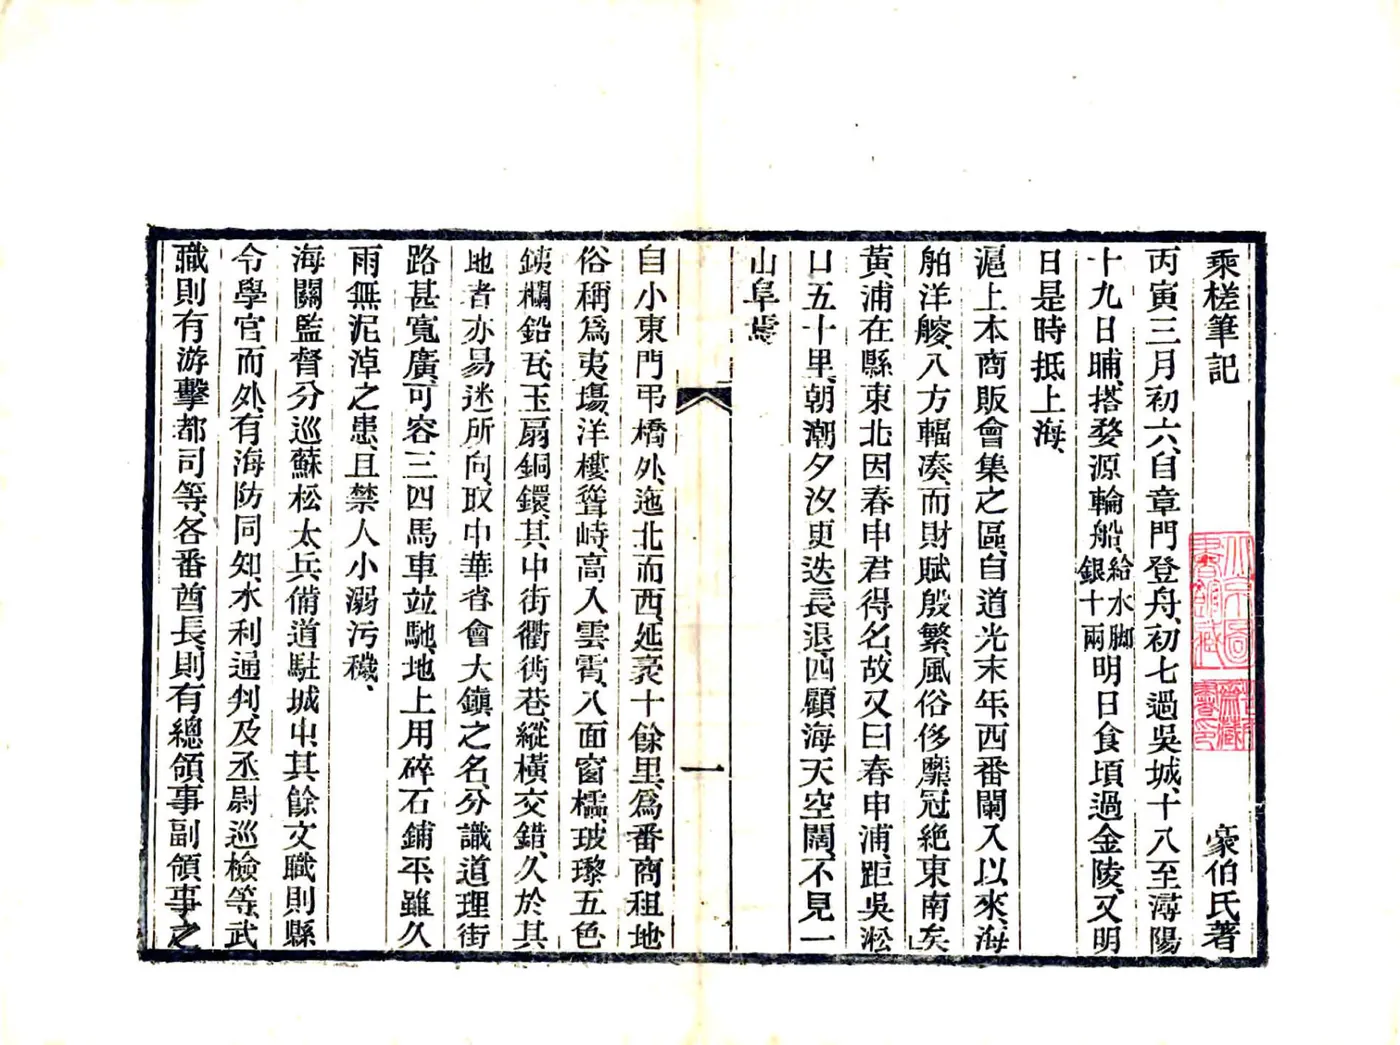 乘槎筆記 豪伯氏著
丙寅三月初六、自章門登舟、初七過吳城、十八至潯陽
十九日晡、搭婺源輪船、給水脚銀十兩明日食頃過金陵、又明
日是時抵上海、
滬上本商販會集之區、自道光末年、西番闌入以來、海
舶洋艘、八方輻湊、而財賦殷繁、風俗侈靡、冠絕東南矣
黃浦在縣東北、因春申君得名、故又曰春申浦、距吳淞
口五十里、朝潮夕汐、更迭長退、四顧海天空闊、不見一
山阜焉
一
自小東門弔橋外、迤北而西、延袤十餘里、爲番商租地
俗稱爲夷場、洋樓聳峙、高入雲霄、八面窗櫺、玻瓈五色
鐵欄鉛瓦、玉扇銅鐶、其中街衢衖巷、縱橫交錯、久於其
地者亦易迷所向、取中華省會大鎮之名、分識道理街
路甚寬廣、可容三四馬車並馳、地上用碎石鋪平、雖久
雨無泥淖之患、且禁人小溺污穢、
海關監督分巡蘇松太兵備道駐城中、其餘文職則縣
令學官而外、有海防同知、水利通判、及丞尉巡檢等、武
職則有游擊都司等、各番酋長、則有總領事副領事之